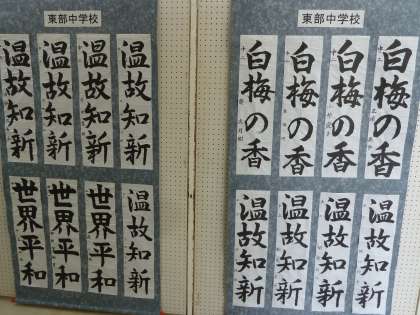 東部中学校
温故知新
温故知新
温故知新
温故知新
世界平和
世界平和
世界平和
温故知新
東部中学校
白梅の香
白梅の香
白梅の香
白梅の香
温故知新
温故知新
温故知新
温故知新